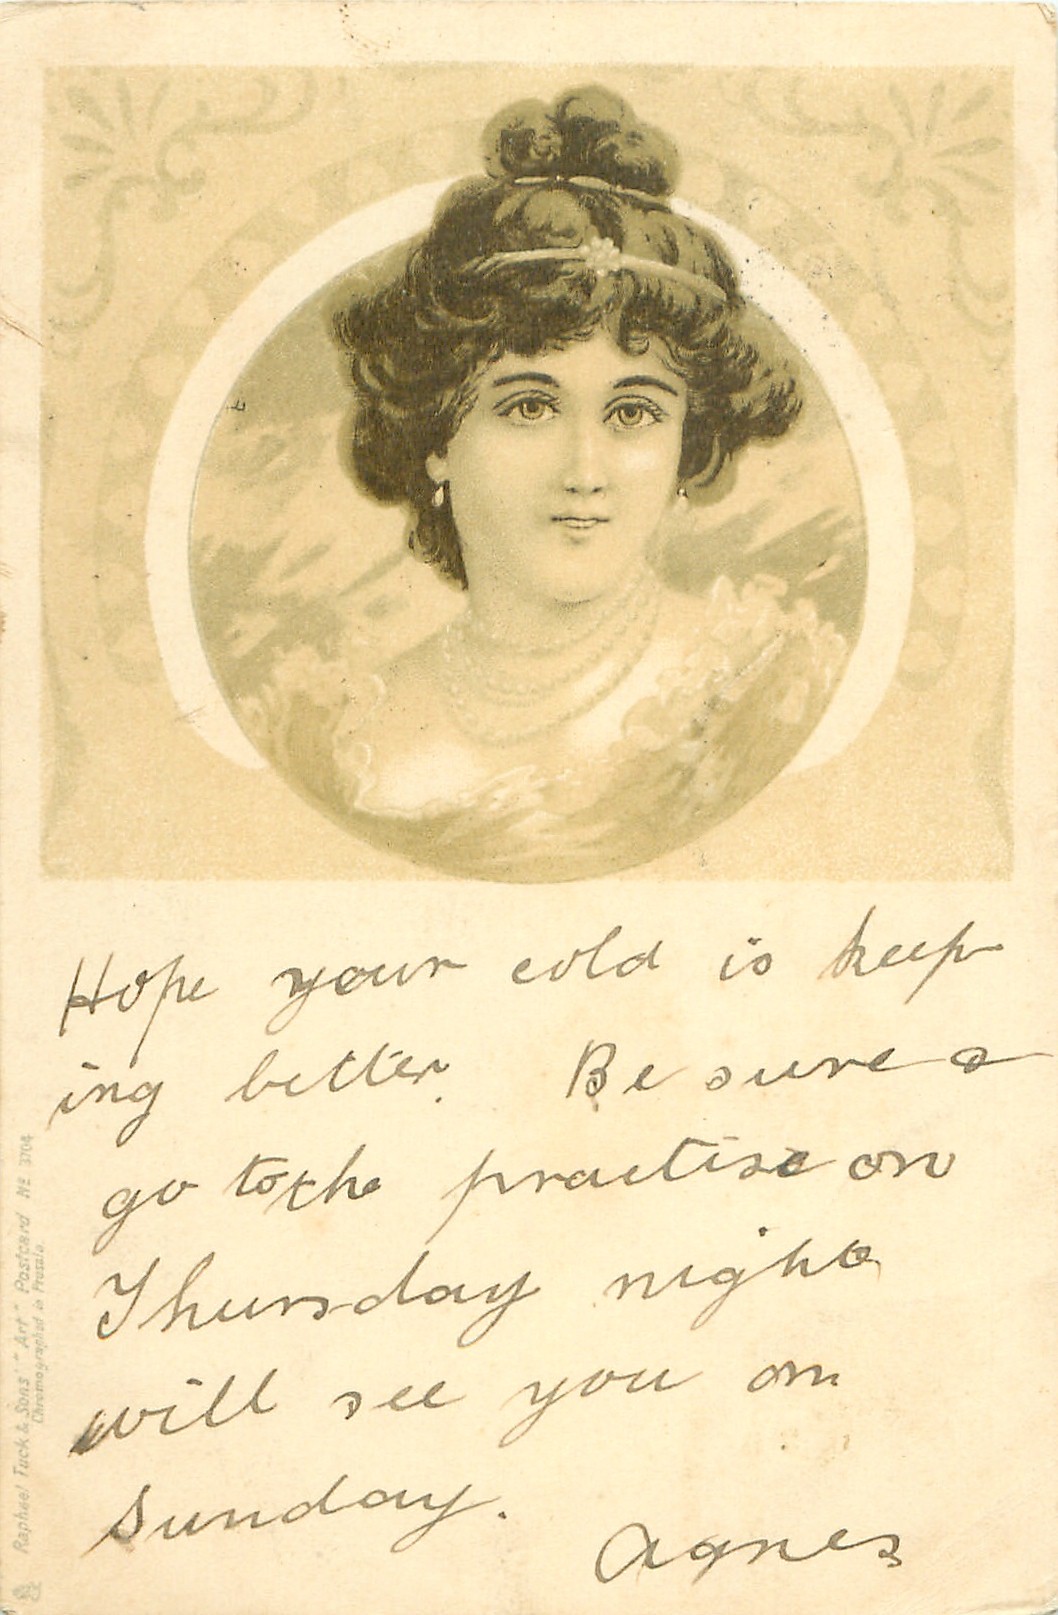 Hope your cold is keep
ing better. Be sure a
go to the practise on
Thursday night
will see you on
Sunday.
Agnes
Raphael Tuck & Sons' "Art" Postcard No 3704
Chromographed in Prussia.